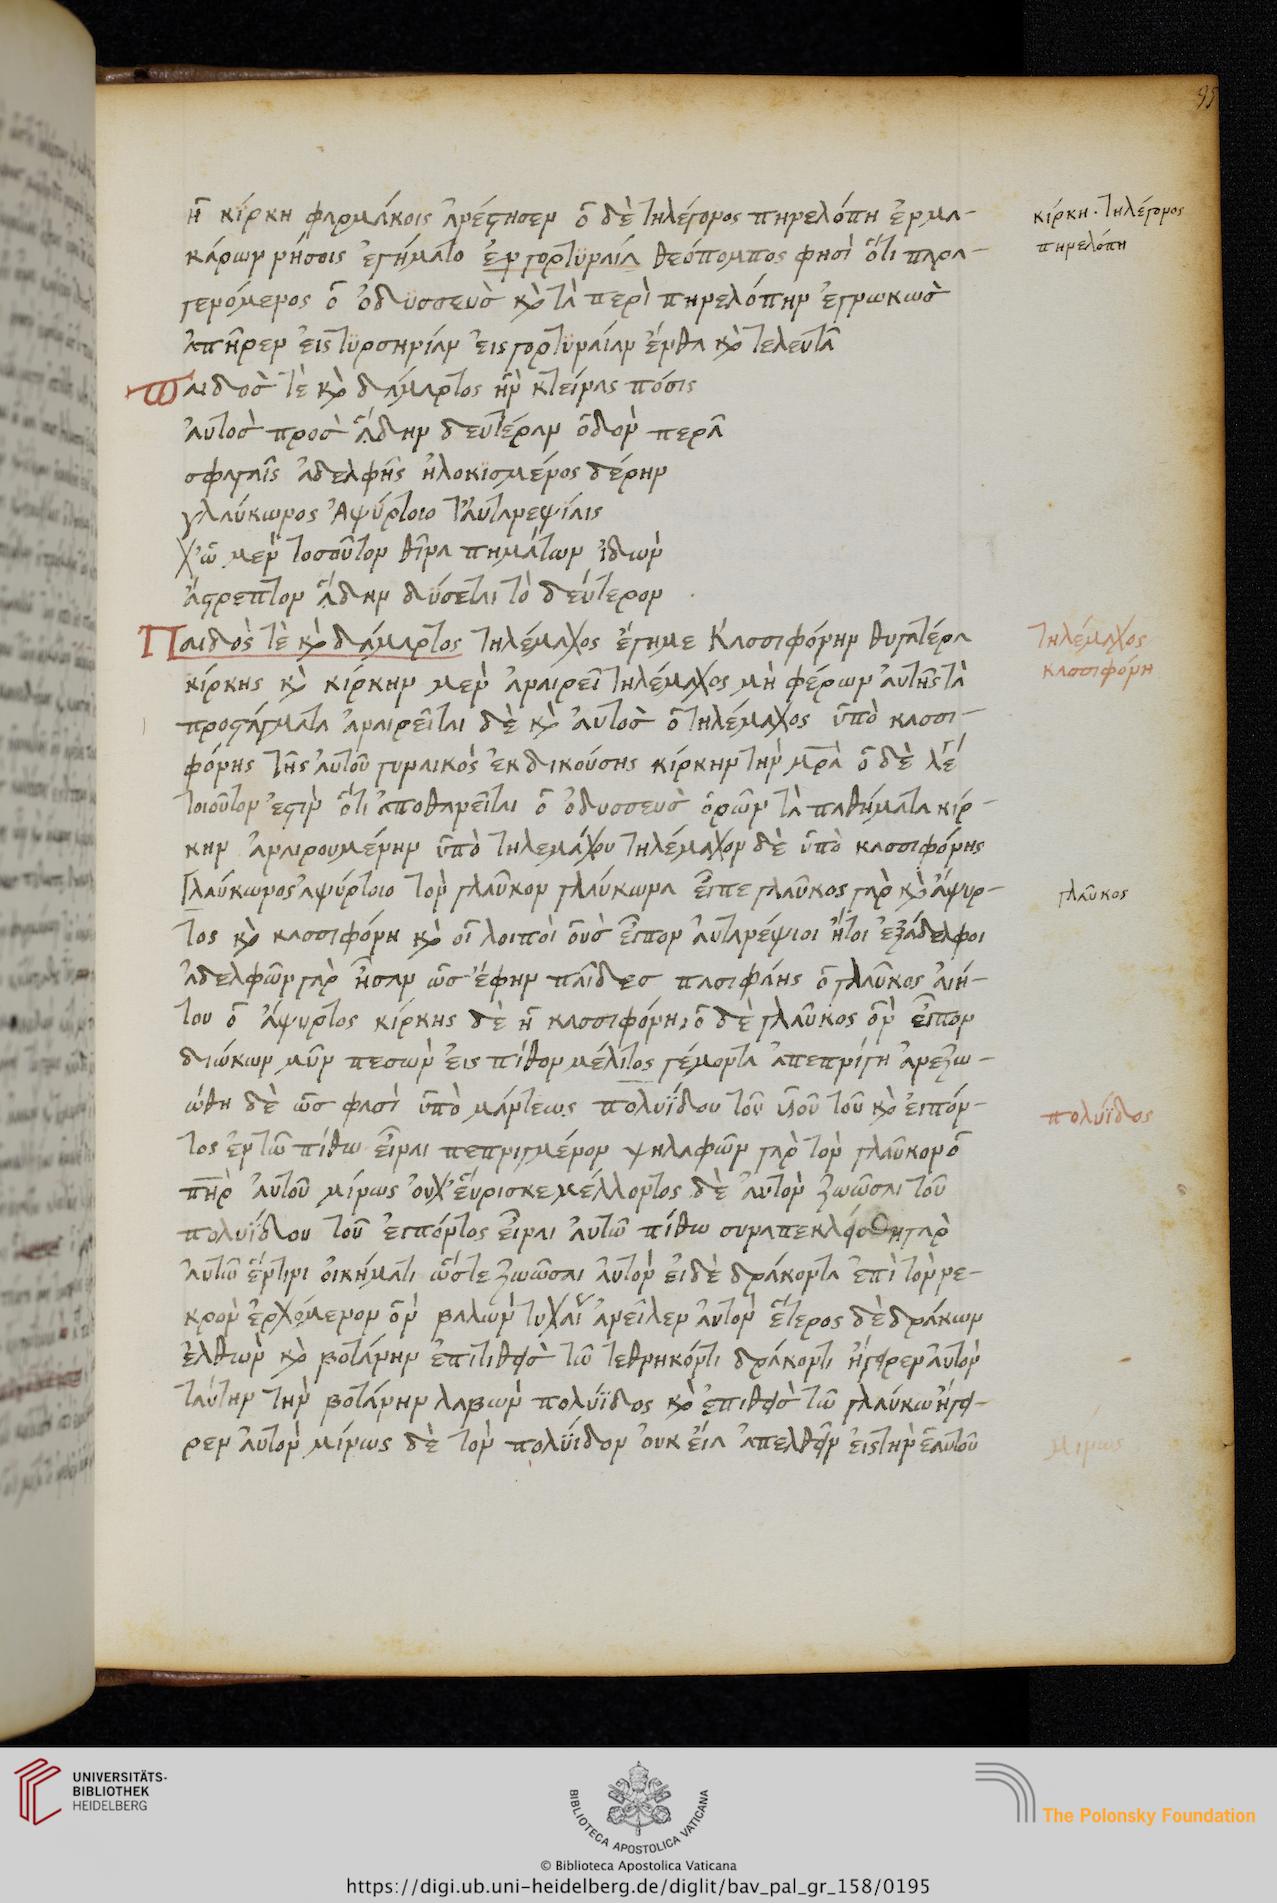 95
ἡ κίρκη φαρμάκοις ἀνέστησεν ὁ δὲ τηλέγονος πηνελόπη ἐν μα-
κάρων νήσοις ἐγήματο ἐν γορτϋναία θεόπομπος φησὶ ὅτι παρα-
γενόμενος ὁ ὀδϋσσεὺσ καὶ τὰ περὶ πηνελόπην ἐγνωκὼσ
ἀπῆρεν εἰς τϋρσηνίαν εἰς γορτϋναίαν ἔνθα καὶ τελευτᾶ
παιδὸσ τὲ καὶ δάμαρτος ἣν κτείνας πόσις
αὐτὸσ πρὸσ ἅδην δευτέραν ὁδὸν περᾶ
σφαγαῖς ἀδελφῆς ἠλοκϊσμένος δέρην
γλαύκωνος Ἀψύρτοιο τ' αὐτανεψίαις
χ' ὧ μεν τοσοῦτον θῖνα πημάτων ἰδὼν
ἄστρεπτον ἅδην δύσεται τὸ δεύτερον
Παιδὸς τὲ καὶ δάμαρτος τηλέμαχος ἔγημε Κασσιφόνην θυγατέρα
κίρκης καὶ κίρκην μεν ἀναιρεῖ τηλέμαχος μὴ φέρων αὐτῆς τὰ
προστάγματα ἀναιρεῖται δὲ καὶ αὐτὸσ ὁ τηλέμαχος ὑπὸ κασσι-
φόνης τῆς αὐτοῦ γυναικὸς ἐκδικούσης κίρκην τὴν μρα ὁ δὲ λέγει
τοιοῦτον ἐστὶν ὅτι ἀποθανεῖται ὁ ὀδυσσεὺσ ὁρῶν τὰ παθήματα κίρ-
κην ἀναιρουμένην ὑπὸ τηλεμάχου τηλέμαχον δὲ ὑπὸ κασσιφόνης
Γλαύκωνος ἀψύρτοιο τὸν γλαῦκον γλαύκωνα εἶπε γλαῦκος γὰρ καὶ ἄψυρ-
τος καὶ κασσιφόνη καὶ οἱ λοιποὶ οὓσ εἶπον αὐτανέψιοι ἤτοι ἐξάδελφοι
ἀδελφῶν γὰρ ἦσαν ὡσ ἔφην παῖδεσ πασιφάης ὁ γλαῦκος αἰή-
του ὁ ἄψυρτος κίρκης δὲ ἡ κασσιφόνη, ὁ δὲ γλαῦκος ὃν εἶπον
διώκων μῦν πεσὼν εἰς πίθον μέλιτος γέμοντα ἀπεπνίγη ἀνεζω-
ώθη δὲ ὡσ φασὶ ὑπὸ μάντεως πολυΐδου τοῦ υἱοῦ τοῦ καὶ εἰπόν-
τος ἐν τῶ πίθω εἶναι πεπνιγμένον ψηλαφῶν γὰρ τὸν γλαῦκον ὁ
πηρ αὐτοῦ μίνως οὐχ' εὕρισκε μέλλοντος δὲ αὐτὸν ζωῶσαι τοῦ
πολυΐδου τοῦ εἰπόντος εἶναι αὐτῶ πίθω συναπεκλείσθη γὰρ
αὐτῶ ἕν τινι οἰκήματι ὥστε ζωῶσαι αὐτὸν εἰ δὲ δράκοντα ἐπὶ τὸν νε-
κρὸν ἐρχόμενον ὃν βαλὼν τυχαί ἀνεῖλεν αὐτὸν ἕτερος δὲ δράκων
ἐλθὼν καὶ βοτάνην ἐπιτιθεὶσ τῶ τεθνηκότι δράκοντι ἤγειρεν αὐτὸν
ταύτην τὴν βοτάνην λαβὼν πολύϊδος καὶ ἐπιθεὶσ τῶ γλαύκω ἤγει-
ρεν αὐτὸν μίνως δὲ τὸν πολύϊδον οὐκ εἴα ἀπελθεῖν εἰς τὴν ἑαυτοῦ
κίρκη. τηλέγονος
πηνελόπη
τηλέμαχος
κασσιφόνη
γλαῦκος
πολυΐδος
μινως
UNIVERSITÄTS-
BIBLIOTHEK
HEIDELBERG
BIBLIOTECA APOSTOLICA VATICANA
The Polonsky Foundation
© Biblioteca Apostolica Vaticana
https://digi.ub.uni-heidelberg.de/diglit/bav_pal_gr_158/0195